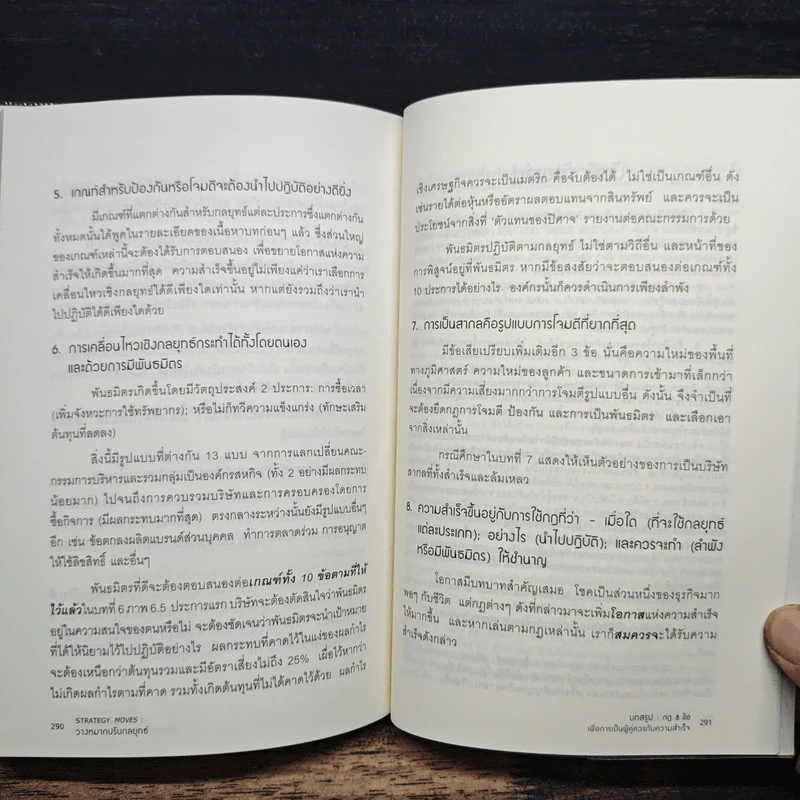 5. เกณฑ์สำหรับป้องกันหรือโจมตีจะต้องนำไปปฏิบัติอย่างดียิ่ง
มีเกณฑ์ที่แตกต่างกันสำหรับกลยุทธ์แต่ละประการซึ่งแตกต่างกัน
ทั้งหมดนั้นได้พูดในรายละเอียดของเนื้อหาบทก่อนๆ แล้ว ซึ่งส่วนใหญ่
ของเกณฑ์เหล่านี้จะต้องได้รับการตอบสนอง เพื่อขยายโอกาสแห่งความ
สำเร็จให้เกิดขึ้นมากที่สุด ความสำเร็จขึ้นอยู่ไม่เพียงแค่ว่าเราเลือกการ
เคลื่อนไหวเชิงกลยุทธ์ได้ดีเพียงใดเท่านั้น หากแต่ยังรวมถึงว่าเรานำ
ไปปฏิบัติได้ดีเพียงใดด้วย
6. การเคลื่อนไหวเชิงกลยุทธ์กระทำได้ทั้งโดยตนเอง
และด้วยการมีพันธมิตร
พันธมิตรเกิดขึ้นโดยมีวัตถุประสงค์ 2 ประการ: การซื้อเวลา
(เพิ่มจังหวะการใช้ทรัพยากร); หรือไม่ก็ทวีความแข็งแกร่ง (ทักษะเสริม
ต้นทุนที่ลดลง)
สิ่งนี้มีรูปแบบที่ต่างกัน 13 แบบ จากการแลกเปลี่ยนคณะ-
กรรมการบริหารและรวมกลุ่มเป็นองค์กรสหกิจ (ทั้ง 2 อย่างมีผลกระทบ
น้อยมาก) ไปจนถึงการควบรวมบริษัทและการครอบครองโดยการ
ซื้อกิจการ (มีผลกระทบมากที่สุด) ตรงกลางระหว่างนั้นยังมีรูปแบบอื่นๆ
อีก เช่น ข้อตกลงผลิตแบรนด์ส่วนบุคคล ทำการตลาดร่วม การอนุญาต
ให้ใช้ลิขสิทธิ์ และอื่นๆ
พันธมิตรที่ดีจะต้องตอบสนองต่อเกณฑ์ทั้ง 10 ข้อตามที่ให้
ไว้แล้วในบทที่ 6 ภาพ 6.5 ประการแรก บริษัทจะต้องตัดสินใจว่าพันธมิตร
อยู่ในความสนใจของตนหรือไม่ จะต้องชัดเจนว่าพันธมิตรจะนำเป้าหมาย
ที่ได้ให้นิยามไว้ไปปฏิบัติอย่างไร ผลกระทบที่คาดไว้ในแง่ของผลกำไร
จะต้องเหนือกว่าต้นทุนรวมและมีอัตราเสี่ยงไม่ถึง 25% เผื่อไว้หากว่า
ไม่เกิดผลกำไรตามที่คาด รวมทั้งเกิดต้นทุนที่ไม่ได้คาดไว้ด้วย ผลกำไร
290 STRATEGY MOVES :
วางหมากปรับกลยุทธ์
เชิงเศรษฐกิจควรจะเป็นเมตริก คือจับต้องได้ ไม่ใช่เป็นเกณฑ์อื่น ดัง
เช่นรายได้ต่อหุ้นหรืออัตราผลตอบแทนจากสินทรัพย์ และควรจะเป็น
ประโยชน์จากสิ่งที่ 'ตัวแทนของปีศาจ' รายงานต่อคณะกรรมการด้วย
พันธมิตรปฏิบัติตามกลยุทธ์ ไม่ใช่ตามวิถีอื่น และหน้าที่ของ
การพิสูจน์อยู่ที่พันธมิตร หากมีข้อสงสัยว่าจะตอบสนองต่อเกณฑ์ทั้ง
10 ประการได้อย่างไร องค์กรนั้นก็ควรดำเนินการเพียงลำพัง
7. การเป็นสากลคือรูปแบบการโจมตีที่ยากที่สุด
มีข้อเสียเปรียบเพิ่มเติมอีก 3 ข้อ นั่นคือความใหม่ของพื้นที่
ทางภูมิศาสตร์ ความใหม่ของลูกค้า และขนาดการเข้ามาที่เล็กกว่า
เนื่องจากมีความเสี่ยงมากกว่าการโจมตีรูปแบบอื่น ดังนั้น จึงจำเป็นที่
จะต้องยึดกฎการโจมตี ป้องกัน และการเป็นพันธมิตร และเลือกเอา
จากสิ่งเหล่านั้น
กรณีศึกษาในบทที่ 7 แสดงให้เห็นตัวอย่างของการเป็นบริษัท
สากลที่ทั้งสำเร็จและล้มเหลว
8. ความสำเร็จขึ้นอยู่กับการใช้กฎที่ว่า - เมื่อใด (ที่จะใช้กลยุทธ์
แต่ละประเภท); อย่างไร (นำไปปฏิบัติ); และควรจะทำ (ลำพัง
หรือมีพันธมิตร) ให้ชำนาญ
โอกาสมีบทบาทสำคัญเสมอ โชคเป็นส่วนหนึ่งของธุรกิจมาก
พอๆ กับชีวิต แต่กฎต่างๆ ดังที่กล่าวมาจะเพิ่มโอกาสแห่งความสำเร็จ
ให้มากขึ้น และหากเล่นตามกฎเหล่านั้น เราก็สมควรจะได้รับความ
สำเร็จดังกล่าว
บทสรุป : กฎ 8 ข้อ 291
เพื่อการเป็นผู้คู่ควรกับความสำเร็จ